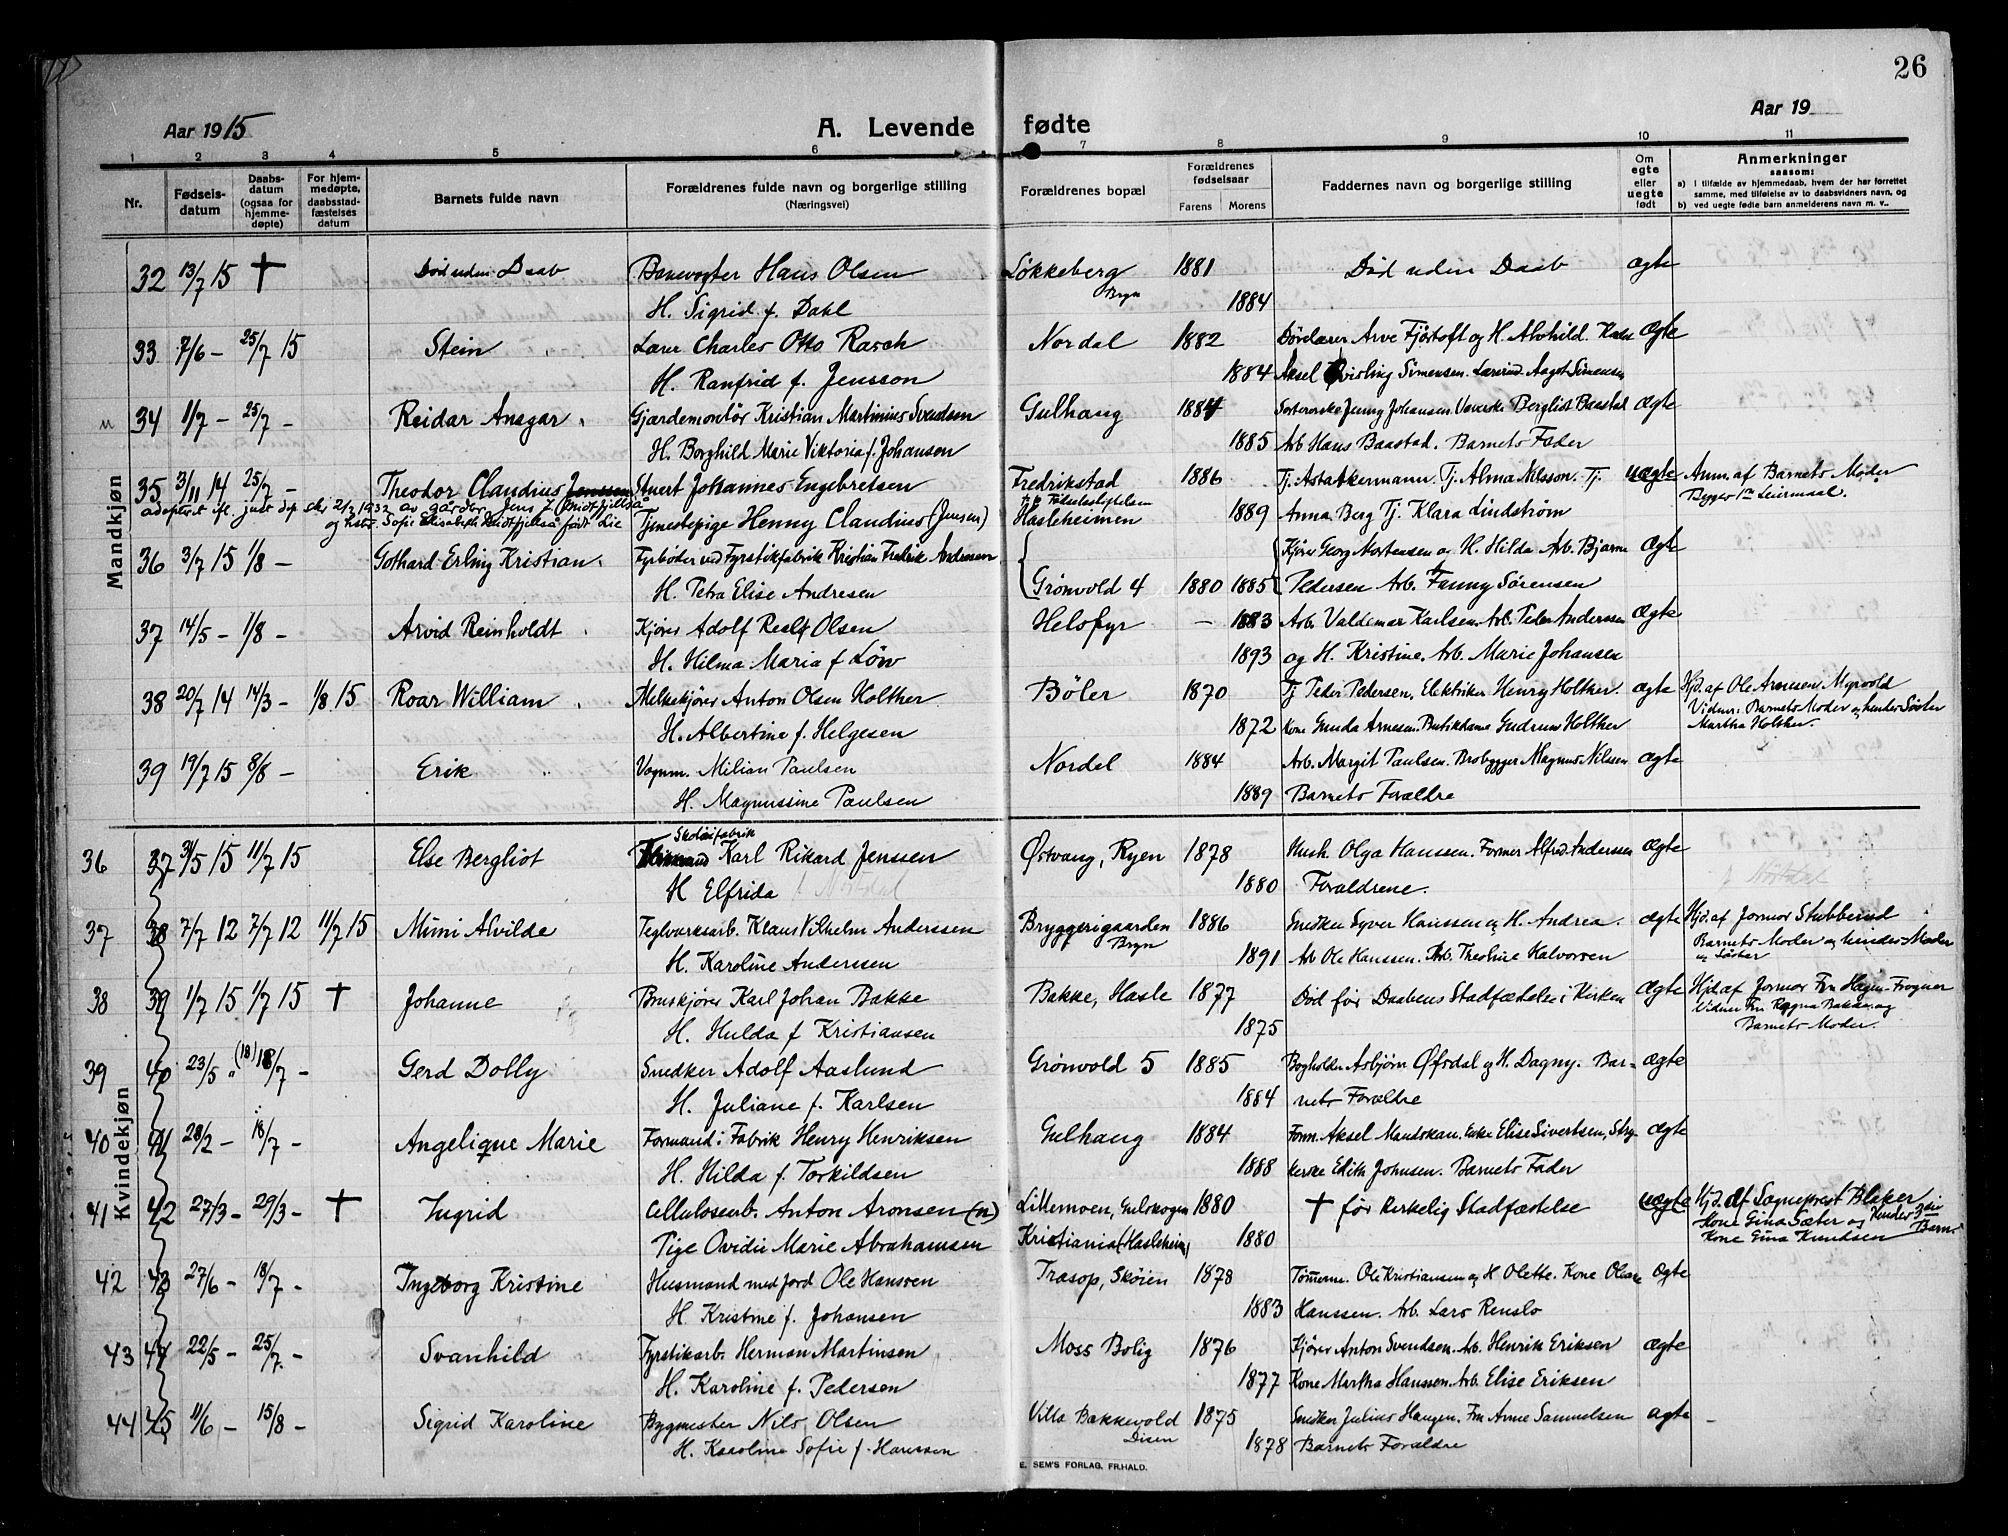 26
Aar 1915
A. Levende fødte
Aar 19
1 2 3 4 5 6 7 8 9 10 11
Nr.
Fødselsdatum
Daabsdatum (ogsaa for hjemmedøpte)
For hjemmedøpte, daabsstadfæstelses datum
Barnets fulde navn
Forældrenes fulde navn og borgerlige stilling
(Næringsvei)
Forældrenes bopæl
Forældrenes fødselsaar
Farens Morens
Faddernes navn og borgerlige stilling
Om egte eller uegte født
Anmerkninger
saasom:
a) I tilfælde av hjemmedaab, hvem der har forrettet samme, med tilføielse av to daabsvidners navn, og
b) ved uegte fødte barn anmelderens navn m. v..
Mandkjøn
32 13/7 15 † Død uden Daab Banevogter Hans Olsen Løkkeberg Bryn 1881 Død uden Daab ægte
H. Sigrid f. Dahl 1884
33 7/6 – 25/7 15 Stein Lærer Charles Otto Rasch Nordal 1882 Døvelærer Arve Fjørtoft og H. Alvhild. ægte
H. Ranfrid f. Jensson 1884 Aksel Qvisling Simensen. Lærerind. Aagot Simensen
34 1/7 – 25/7 – Reidar Ansgar Gjærdemontør Kristian Martinius Svendsen Gulhaug 1884 Jenny Johansen. Bergliot Baastad ægte
H. Borghild Marie Viktoria f. Johansen 1885 Arb Hans Baastad. Barnets Fader
35 3/11 14 25/7 – Theodor Claudius Jenssen Stuert Johannes Engebretsen Fredrikstad 1886 Tj. Asta Akermann. Tj. Alma Nilsson. Tj. uægte Anm. af Barnets Moder
adoptert ifl. just dep skr 21/3 1932 av gårdbr. Jens Z. Midtfjellså
og hstr. Sofie Elisabeth Midtfjellså født Lie Tjenestepige Henny Claudius (Jensen) Hasleheimen 1889 Anna Berg Tj. Klara Lindstrøm Bygger 1ste Leiermaal.
36 3/7 15 1/8 – Gothard Erling Kristian Fyrbøder ved Fyrstikfabrik Kristian Fredrik Andresen Kjører Georg Mortensen og H. Hilda. Arb. Bjarne ægte
H. Petra Elise Andresen Grønvold 4 1880 1885 Pedersen Arb. Fanny Sørensen
37 14/5 – 1/8 – Arvid Reinholdt Kjører Adolf Realf Olsen Helsfyr – 1883 Arb. Valdemar Karlsen Arb. Peder Anderssen ægte
H. Hilma Maria f Løw 1893 og H. Kristine. Arb. Marie Johansen
38 20/7 14 14/3 – 1/8 15 Roar William Melkekjører Anton Olsen Holther Bøler 1870 Tj Peder Pedersen. Elektriker Henry Holther. ægte Hjd. af Ole Arnesen, Myrvold
H. Albertine f. Helgesen 1872 Kone Gunda Arnesen. Butikdame Gudrun Holther Vidner: Barnets Moder og hendes Søster
Martha Holther.
39 19/7 15 8/8 – Erik Vognm. Milian Paulsen Nordal 1884 Arb. Margit Paulsen. Brobygger Magnus Nilssen ægte
H. Magnussine Paulsen 1889 Barnets Forældre
Kvindekjøn
36 37 31/5 15 11/7 15 Else Bergliot Skotøifabrik Karl Rikard Jenssen Østvang, Ryen 1878 Hush. Olga Hanssen. Former Alfred Anderssen ægte
H Elfrida f. Nordal 1880 Forældrene.
37 38 7/7 12 7/7 12 11/7 15 Mimi Alvilde Teglværksarb. Klaus Vilhelm Anderssen Bryggerigaarden Bryn 1886 Snedker Syver Hanssen og H. Andrea. ægte Hjd. af Jormor Stubberud
H. Karoline Anderssen 1891 Arb Ole Hanssen. Arb. Theoline Halvorsen Barnets Moder og hendes Moder
og Søster
38 39 1/7 15 1/7 15 † Johanne Bruskjører Karl Johan Bakke Bakke, Hasle 1877 Død før Daabens Stadfæstelse i Kirken ægte Hjd. af Jormor Fru Hagen-Frogner
H. Hulda f Kristiansen 1875 Vidner Fru Ragna Bakke og
Barnets Moder.
39 40 23/5 " (18) 18/7 – Gerd Dolly Snedker Adolf Aaslund Grønvold 5 1885 Bogholder Asbjørn Øfsdal og H. Dagny. Bar- ægte
H. Juliane f. Karlsen 1884 nets Forældre
40 41 28/2 – 18/7 – Angelique Marie Formand i Fabrik Henry Henriksen Gulhaug 1884 Form. Aksel Mandskau. Enke Elise Sivertsen, Stry- ægte
H. Hilda f. Torkildsen 1888 kerske Edith Johnsen. Barnets Fader
41 42 27/3 – 29/3 – † Ingrid Cellulosearb. Anton Aronsen (n) Lillemoen, Gulskogen 1880 † før kirkelig Stadfæstelse uægte Hjd. af Sogneprest Blaker
Pige Ovidie Marie Abrahamsen Kristiania (Hasleheim) 1880 Kone Gina Sæter og Hendes 3die Barn
Kone Gina Knudsen
42 43 27/6 – 18/7 – Ingeborg Kristine Husmand med Jord Ole Hansen Træsop, Skøien 1878 Tømmerm. Ole Kristiansen og H Olette. Kone ægte
H. Kristine f. Johansen 1883 Hanssen. Arb. Lars Renslo
43 44 22/5 – 25/7 – Svanhild Fyrstikarb. Herman Martinsen Moss Bolig 1876 Kjører Anton Svendsen. Arb. Henrik Eriksen ægte
H. Karoline f. Pedersen 1877 Kone Martha Hanssen. Arb. Elise Eriksen
44 45 11/6 – 15/8 – Sigrid Karoline Bygmester Nils Olsen Villa Bakkevold Disen 1875 Snedker Julius Haugen. Fru Anne Samuelsen ægte –
H. Karoline Sofie f. Hanssen 1878 Barnets Forældre
E. SEM'S FORLAG, FR.HALD.